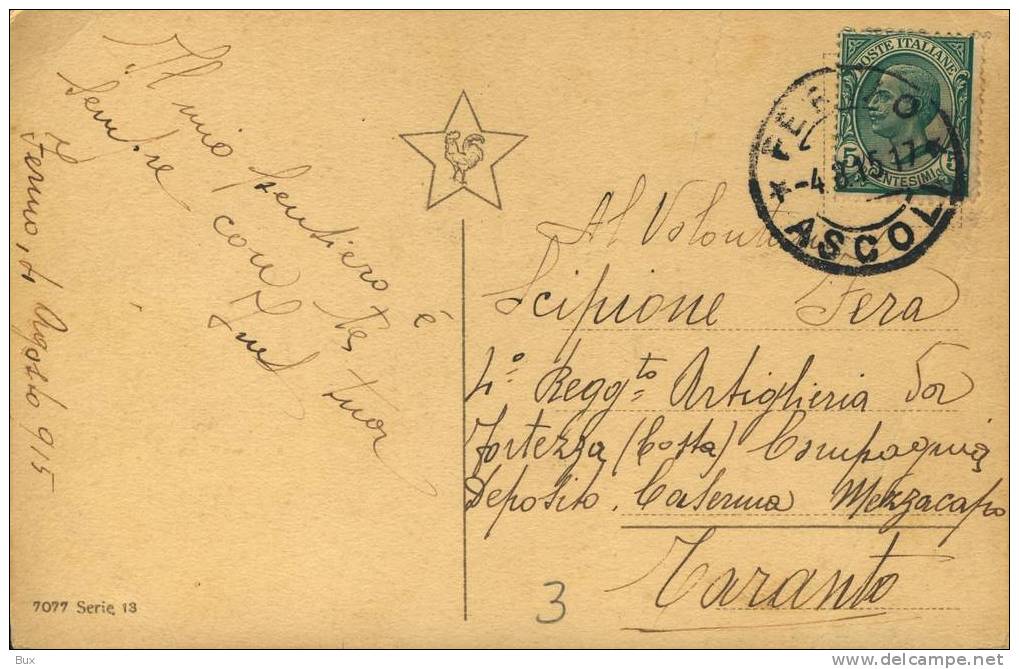 Il mio pensiero è
sempre con te
Fermo, 4 Agosto 915
POSTE ITALIANE
5 CENTESIMI 5
* FERMO *
-4.8.15.17
ASCOLI
Al Volontario
Scipione Fera
4º Reggto Artiglieria da
Fortezza (Costa) Compagnia
Deposito. Caserma Mezzacapo
Taranto
3
7077 Serie 13
Bux
delcampe.net